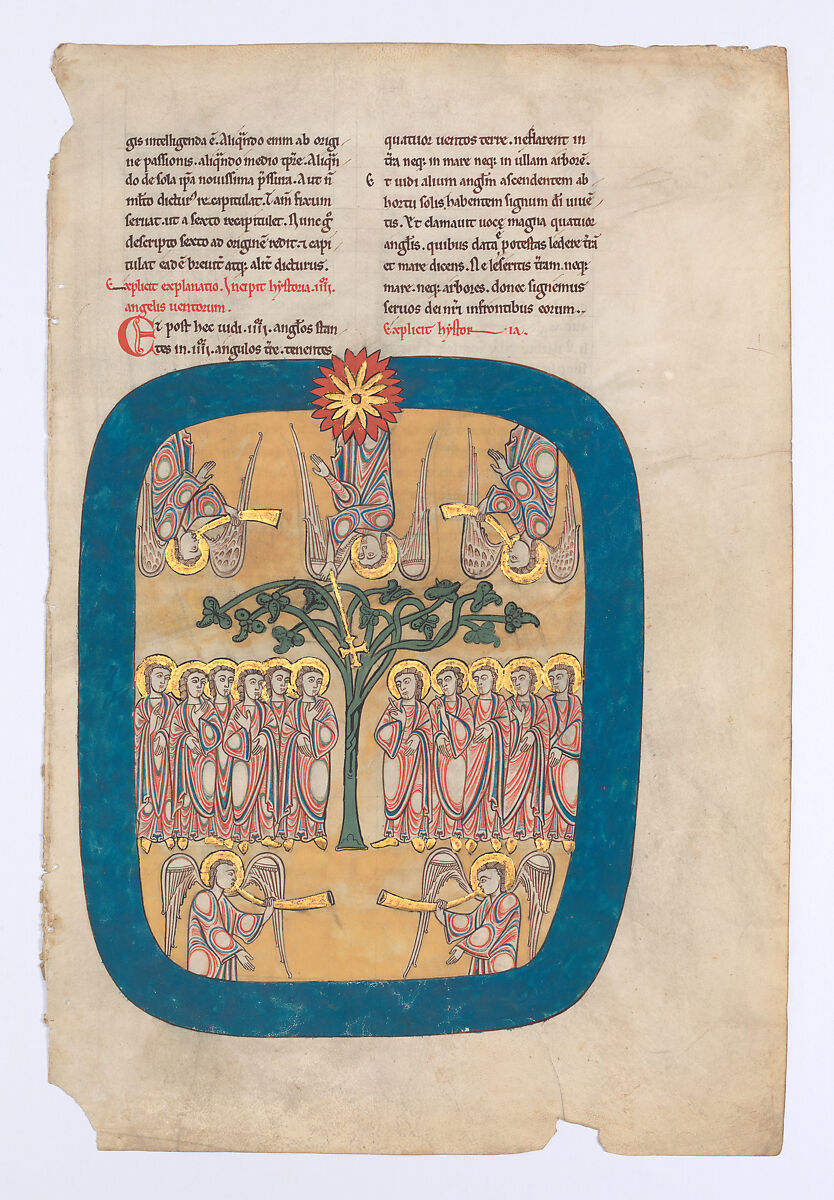 gis intelligenda ē. Aliqn̄do enim ab origi
ne passionis. aliqn̄do medio tp̄re. Aliqn̄
do de sola ip̄a novissima p̄ssura. Aut n̄
mlto dictur᾽ recapitulat. Tam̄ fixum
servat. ut a sexto recapitulet. Nunc gͦ
descripto sexto ad originē redit. ⁊ capi
tulat eadē brevit̄ atq; alit̄ dicturus.
Explicit explanatio. Incipit hystoria .iiii.
angelis ventorum.
Et post hec vidi .iiii. angl̄os stan
tes in .iiii. angulos t̄re. tenentes
quatuor ventos terre. ne flarent in
t̄ra neq; in mare neq; in ullam arborē.
Et vidi alium angl̄m ascendentem ab
hortu solis, habentem signum dī vivē
tis. Et clamavit voce magna quatuor
angl̄is. quibus data ē potestas ledere t̄rā
et mare dicens. Ne leseritis t̄ram. neq;
mare. neq; arbores. donec signemus
servos dei nr̄i infrontibus eorum..
Explicit hystoria.